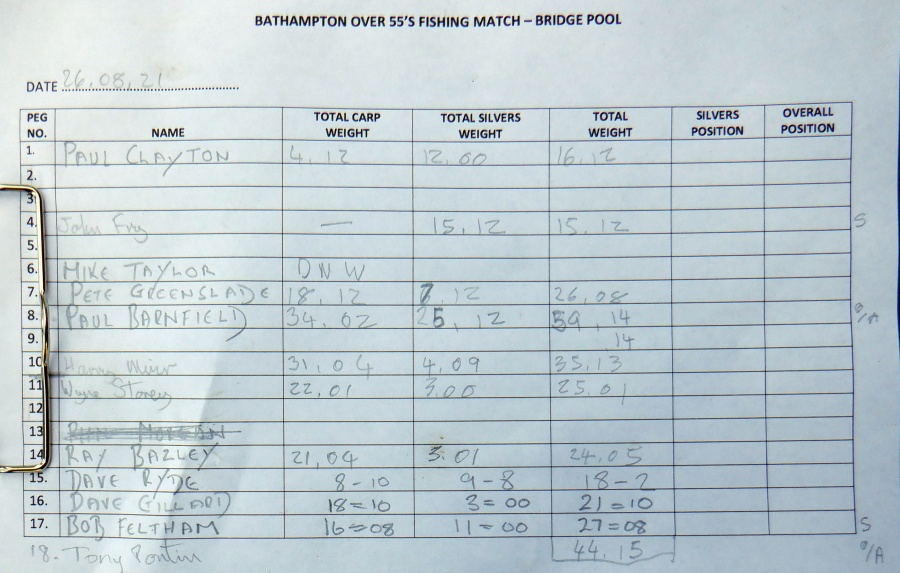 BATHAMPTON OVER 55'S FISHING MATCH – BRIDGE POOL
DATE 26.08.21
PEG NO. NAME TOTAL CARP WEIGHT TOTAL SILVERS WEIGHT TOTAL WEIGHT SILVERS POSITION OVERALL POSITION
1. PAUL CLAYTON 4.12 12.00 16.12
2.
3.
4. John Fry — 15.12 15.12 S
5.
6. MIKE TAYLOR DNW
7. PETE GREENSLADE 18.12 7.12 26.08
8. PAUL BARNFIELD 34.02 25.12 59.14 O/A
9. .14
10 Harry Muir 31.04 4.09 35.13
11 Wayne Storey 22.01 3.00 25.01
12
13
14 RAY BAZLEY 21,04 3.01 24.05
15. DAVE RYDE 8-10 9-8 18-2
16. DAVE GILLARD 18=10 3=00 21=10
17. BOB FELTHAM 16=08 11=00 27=08 S
18. Tony Pontin 44.15 O/A